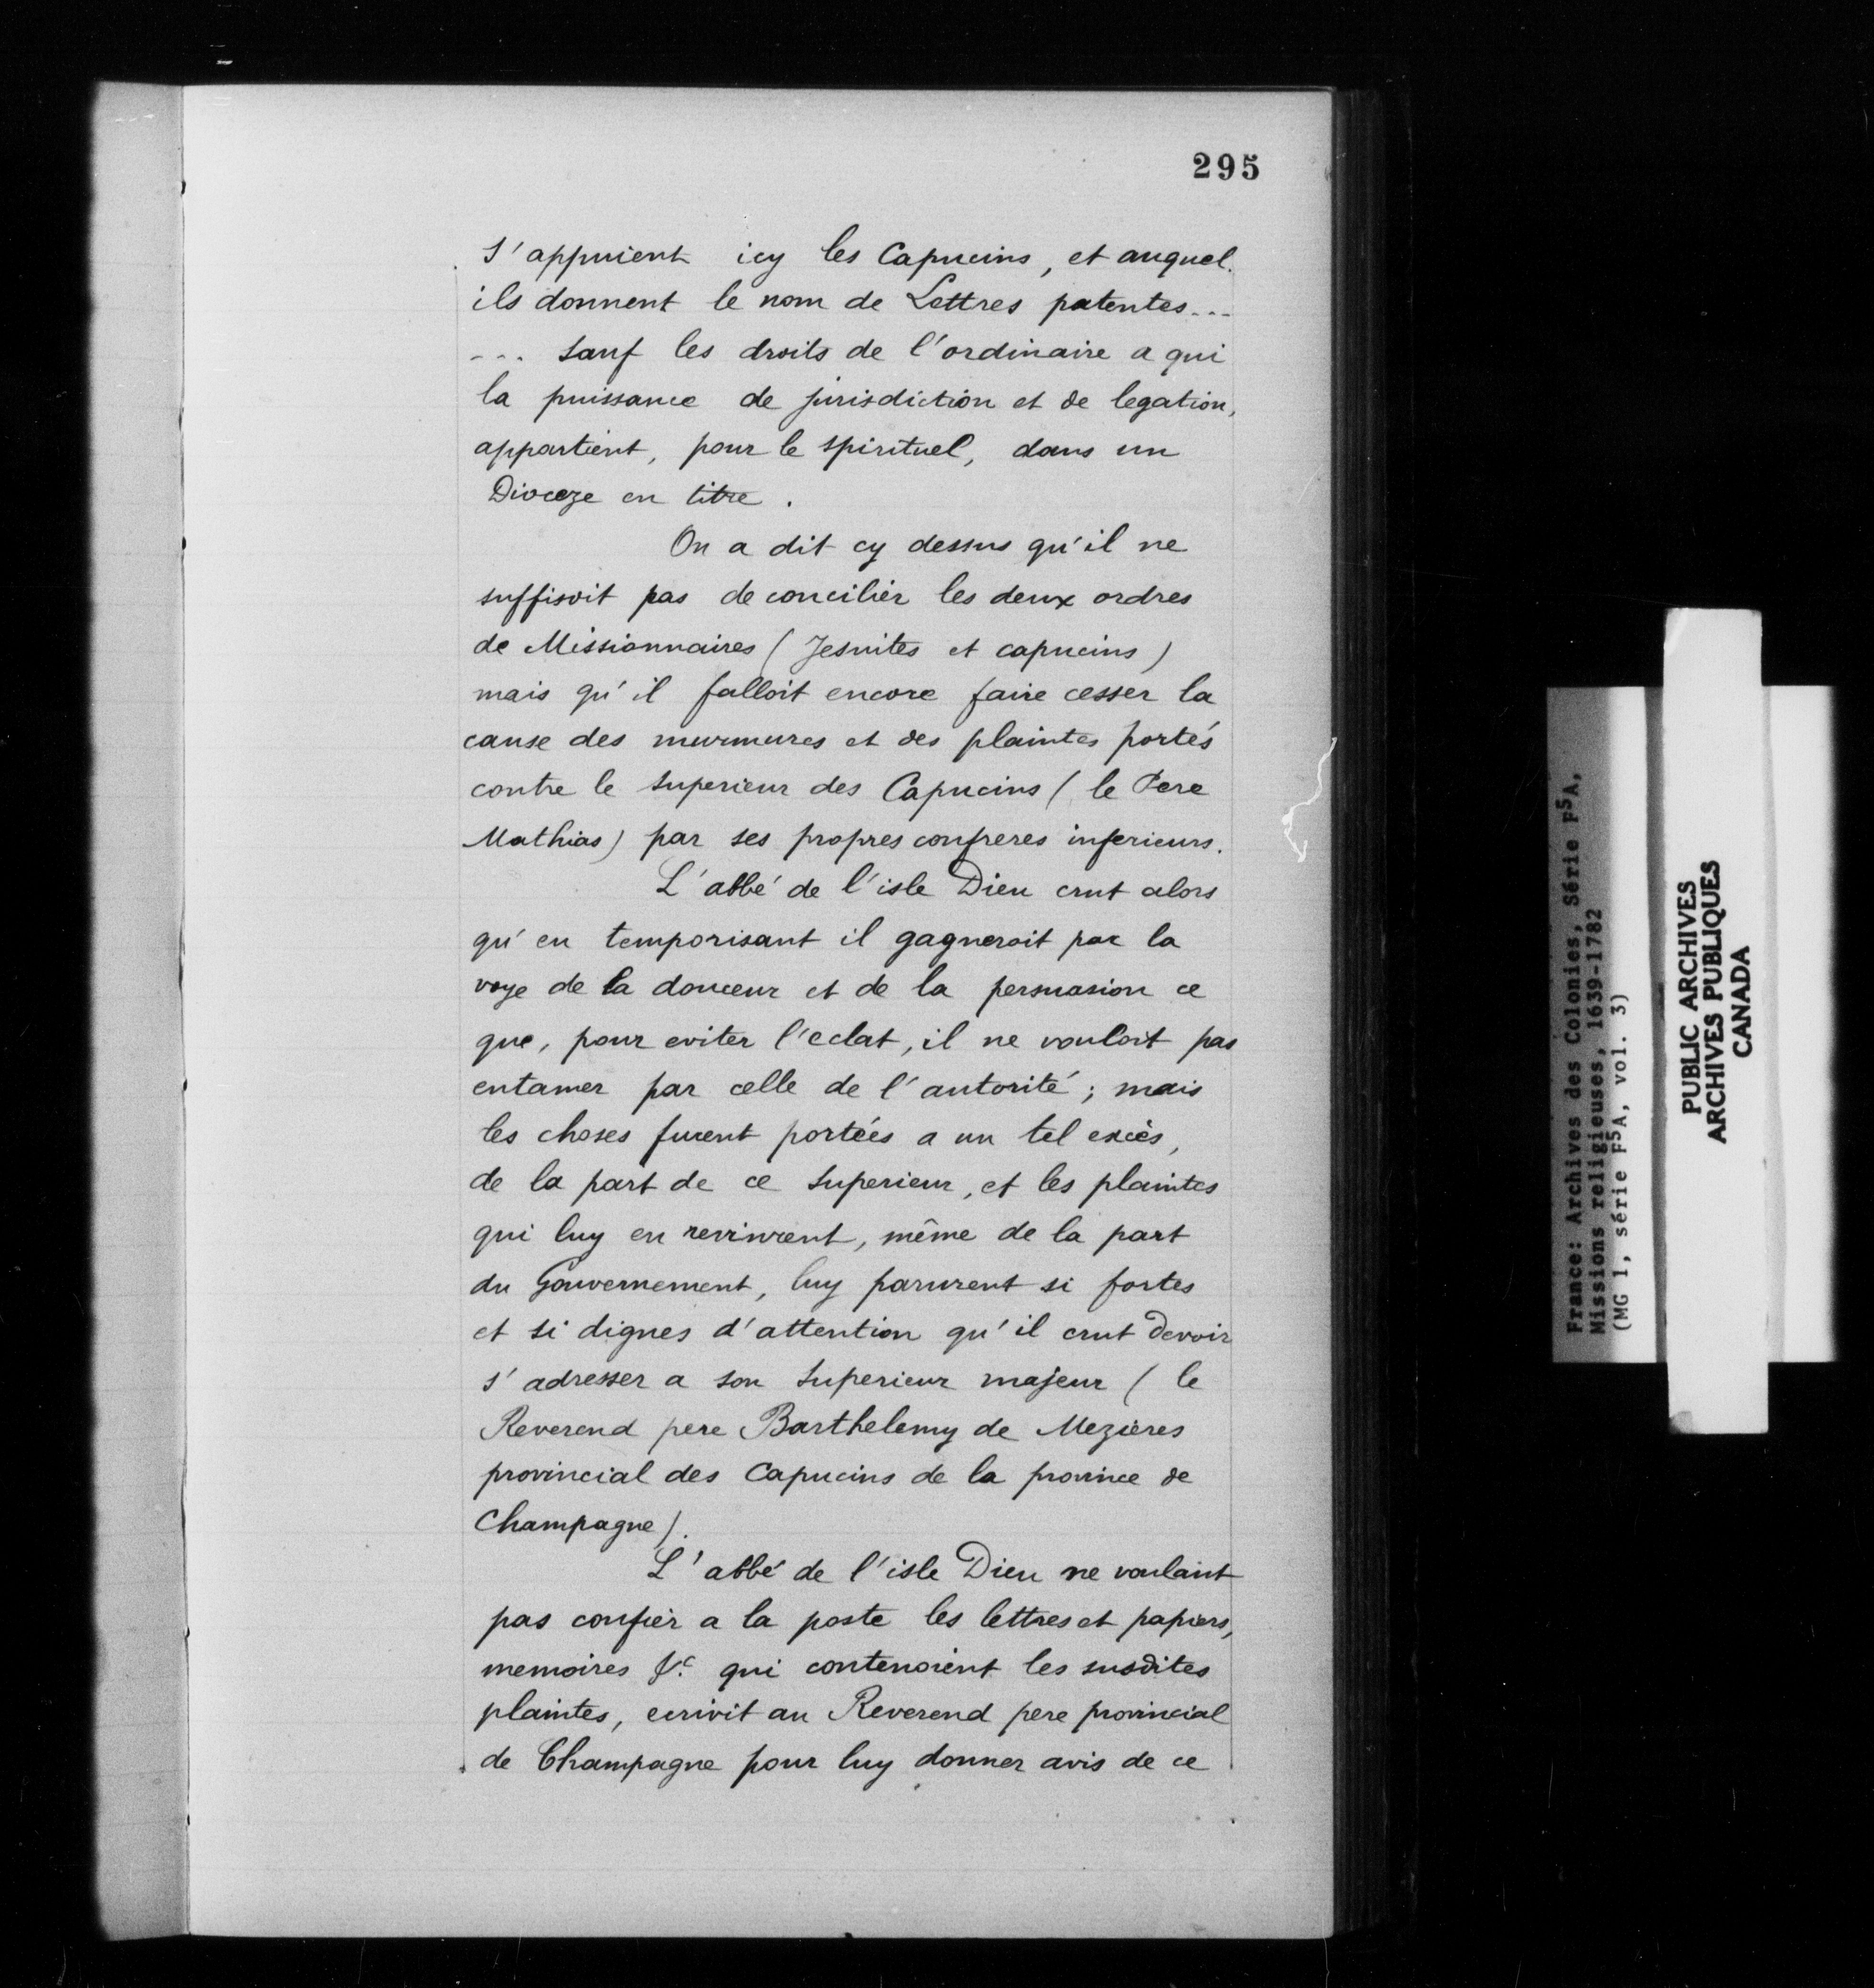 295
s'appuient icy les Capucins, et auquel.
ils donnent le nom de Lettres patentes...
... sauf les droits de l'ordinaire a qui
la puissance de jurisdiction et de legation,
appartient, pour le spirituel, dans un
Dioceze en titre.
On a dit cy dessus qu'il ne
suffisoit pas de concilier les deux ordres
de Missionnaires (Jesuites et capucins)
mais qu'il falloit encore faire cesser la
cause des murmures et des plaintes portés
contre le superieur des Capucins (le Pere
Mathias) par ses propres confreres inferieurs.
L'abbé de l'isle Dieu crut alors
qu'en temporisant il gagneroit par la
voye de la douceur et de la persuasion ce
que, pour eviter l'eclat, il ne vouloit pas
entamer par celle de l'autorité; mais
les choses furent portées a un tel excès,
de la part de ce superieur, et les plaintes
qui luy en revinrent, même de la part
du Gouvernement, luy parurent si fortes
et si dignes d'attention qu'il crut devoir
s'adresser a son superieur majeur (le
Reverend pere Barthelemy de Mezières
provincial des Capucins de la province de
Champagne).
L'abbé de l'isle Dieu ne voulant
pas confier a la poste les lettres et papiers,
memoires &c qui contenoient les susdites
plaintes, ecrivit au Reverend pere provincial
de Champagne pour luy donner avis de ce
France: Archives des Colonies, Série F5A,
Missions religieuses, 1639-1782
(MG 1, série F5A, vol. 3)
PUBLIC ARCHIVES
ARCHIVES PUBLIQUES
CANADA